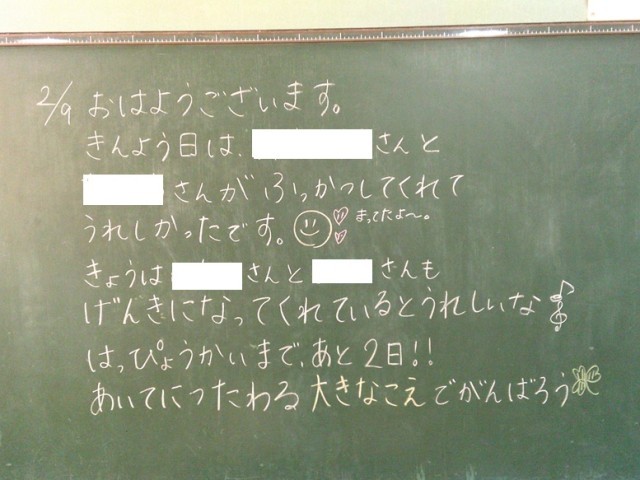 2/9 おはようございます。
きんよう日は、さんと
さんがふっかつしてくれて
うれしかったです。まってたよ〜。
きょうはさんとさんも
げんきになってくれているとうれしいな
はっぴょうかいまで、あと2日!!
あいてにつたわる大きなこえでがんばろう